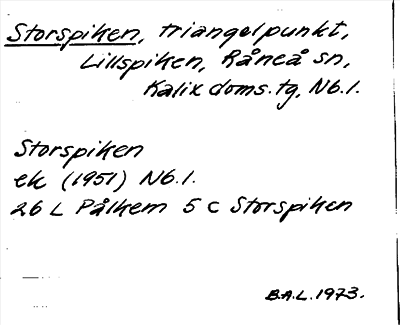 Storspiken, triangelpunkt,
Lillspiken, Råneå sn,
Kalix doms.tg, Nb.l.
Storspiken
ek (1951) Nb.l.
26 L Pålkem 5 c Storspiken
B.A.L. 1973.